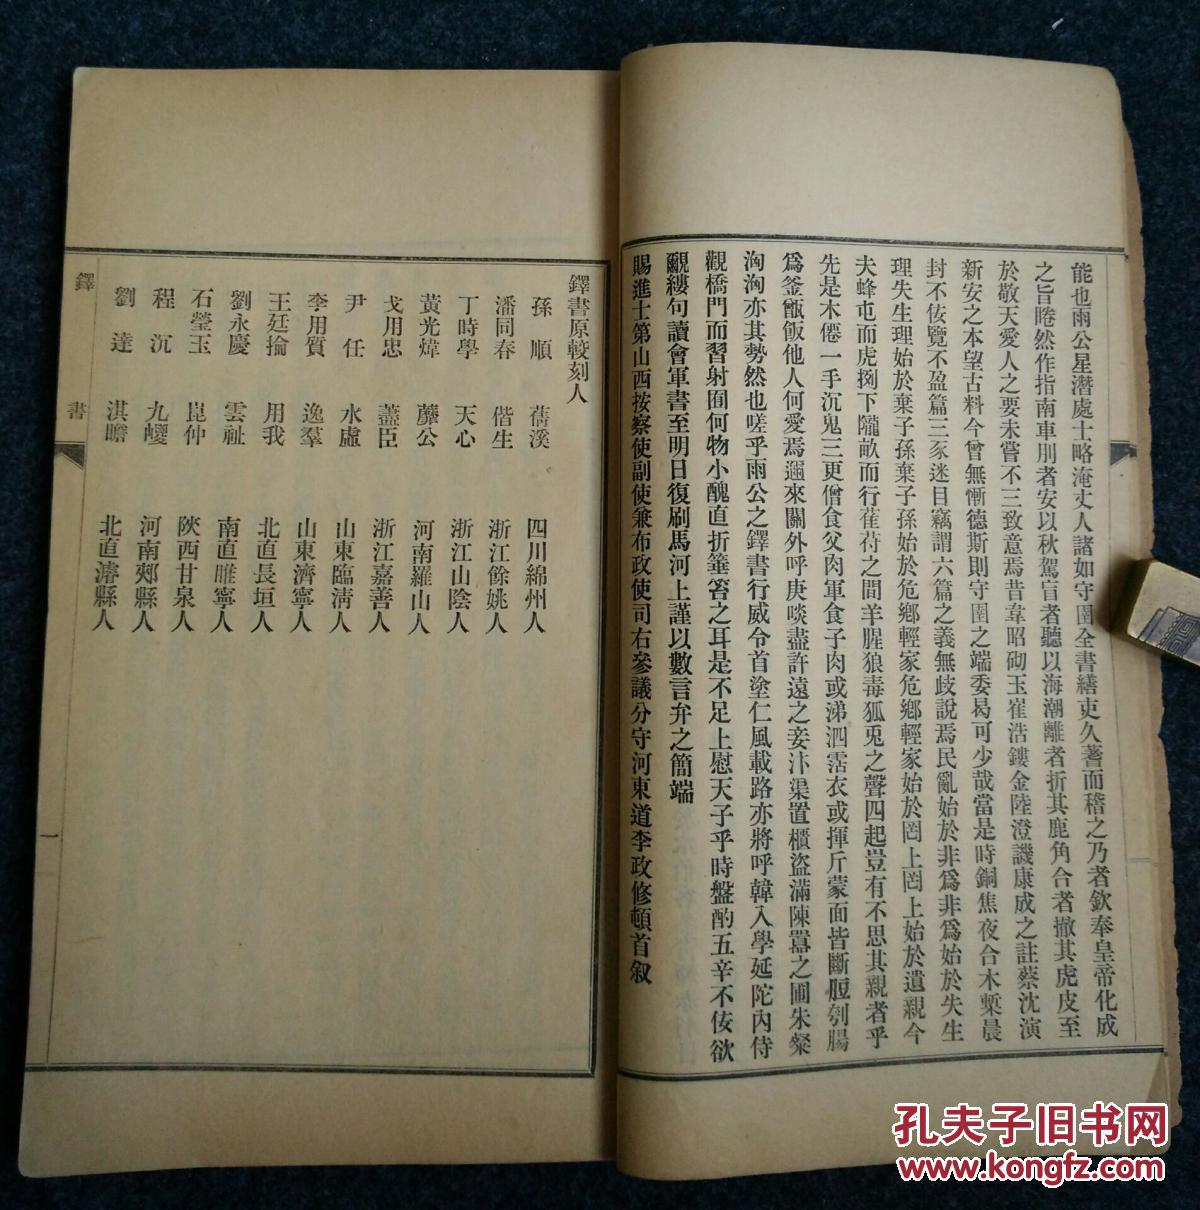 能也兩公星潛處士略淹丈人諸如守圉全書繕吏久著而稽之乃者欽奉皇帝化成
之旨睠然作指南車刖者安以秋駕盲者聽以海潮離者折其鹿角合者撤其虎皮至
於敬天愛人之要未嘗不三致意焉昔韋昭砌玉崔浩鏤金陸澄譏康成之註蔡沈演
新安之本望古料今曾無慚德斯則守圉之端委曷可少哉當是時銅焦夜合木槧晨
封不佞覽不盈篇三豕迷目竊謂六篇之義無歧說焉民亂始於非爲非爲始於失生
理失生理始於棄子孫棄子孫始於危鄉輕家危鄉輕家始於罔上罔上始於遺親今
夫蜂屯而虎捌下隴畝而行萑苻之間羊腥狼毒狐兎之聲四起豈有不思其親者乎
先是木僊一手沉鬼三更僧食父肉軍食子肉或涕泗霑衣或揮斤蒙面皆斷脰刳腸
爲釜甑飯他人何愛焉邇來關外呼庚啖盡許遠之妾汴渠置櫃盜滿陳嚣之圃朱粲
洶洶亦其勢然也嗟乎兩公之鐸書行威令首塗仁風載路亦將呼韓入學延陀內侍
觀橋門而習射囿何物小醜直折箠笞之耳是不足上慰天子乎時盤酌五辛不佞欲
覼縷句讀會軍書至明日復刷馬河上謹以數言弁之簡端
賜進士第山西按察使副使兼布政使司右參議分守河東道李政修頓首叙
鐸書原較刻人
孫 順 蒨溪 四川綿州人
潘同春 偕生 浙江餘姚人
丁時學 天心 浙江山陰人
黃光煒 藤公 河南羅山人
戈用忠 藎臣 浙江嘉善人
尹 任 水虛 山東臨清人
李用質 逸羣 山東濟寧人
王廷掄 用我 北直長垣人
劉永慶 雲祉 南直睢寧人
石瑩玉 崑仲 陜西甘泉人
程 沉 九巙 河南郟縣人
劉 達 淇瞻 北直濬縣人
鐸 書 一
孔夫子旧书网
www.kongfz.com